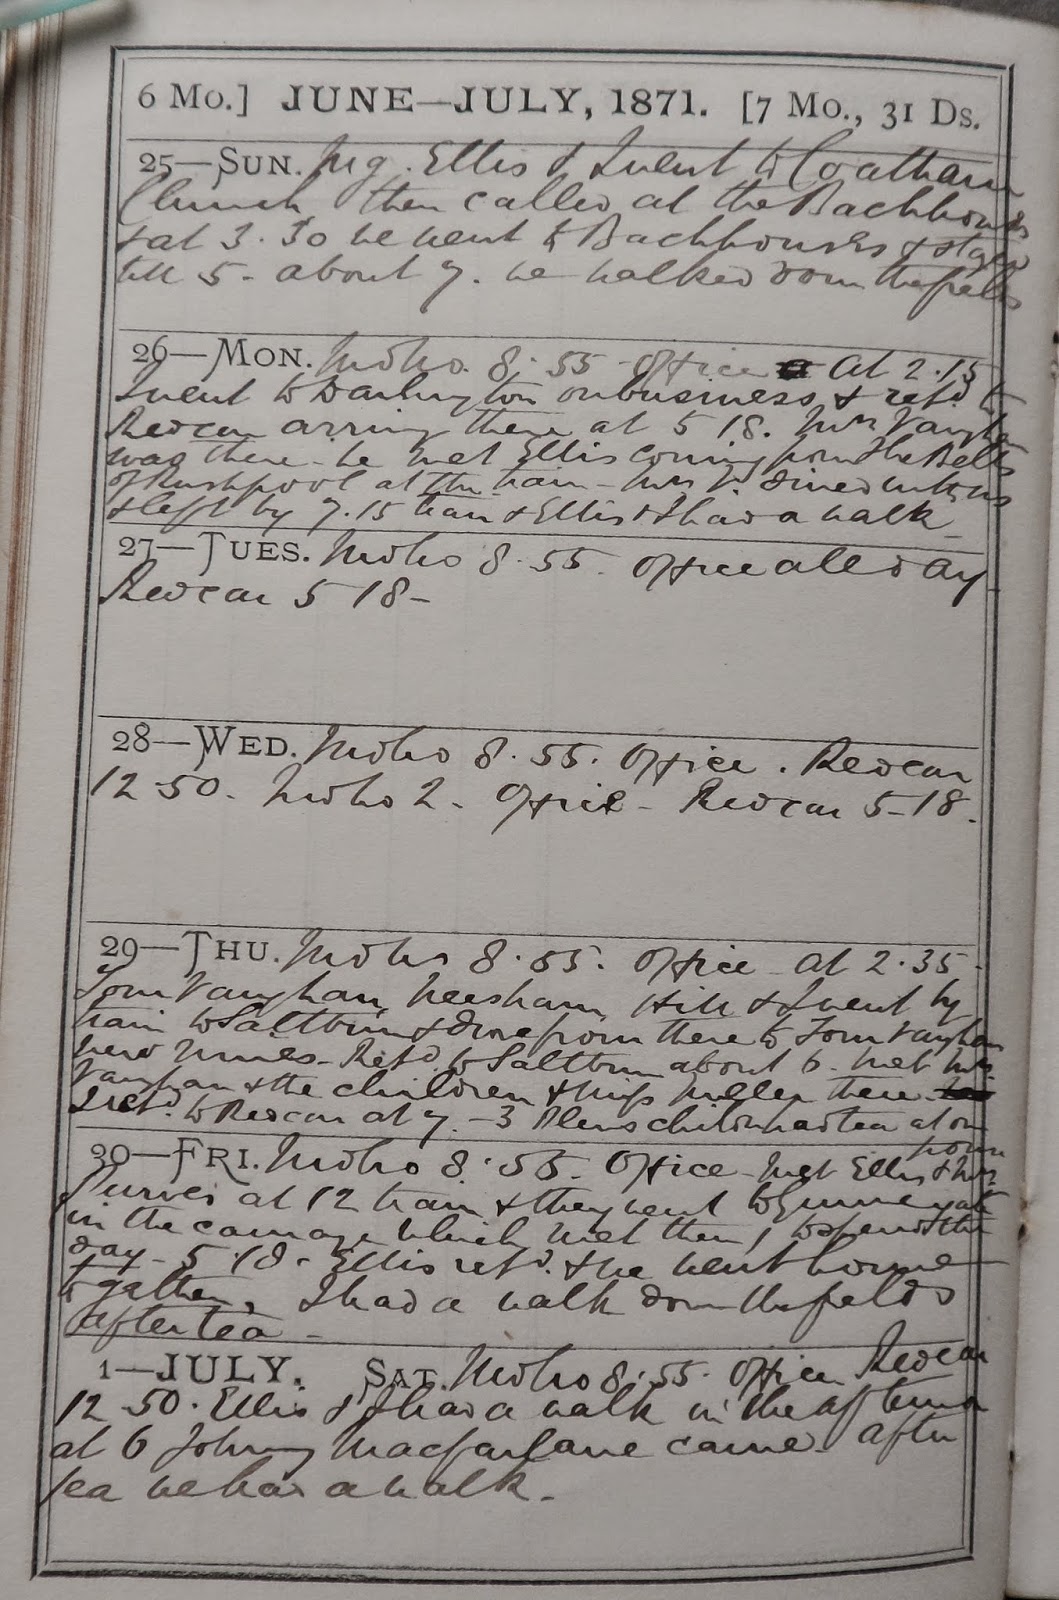 6 Mo.] JUNE—JULY, 1871. [7 Mo., 31 Ds.
25—SUN. Mg. Ellis & I went to Coatham
Church, then called at the Backhouses
& at 3.30 we went to Backhouses & stayed
till 5 - about 7. we walked down the fields
26—MON. Mdbro. 8.55 - Office at 2.15
I went to Darlington on business & retd. to
Redcar arriving there at 5 18. Mrs Vaughan
was there - we met Ellis coming from the Bells
of Rushpool at the train - Mrs V. dined with us
& left by 7.15 train & Ellis & I had a walk -
27—TUES. Mdbro 8.55. Office all day
Redcar 5 18 -
28—WED. Mdbro 8.55. Office. Redcar
12-50. Mdbro 2. Office - Redcar 5-18.
29—THU. Mdbro 8.55. Office - at 2.35 -
Tom Vaughan, Neesham, Hill & I went by
train to Saltburn & drove from there to Tom Vaughans
new mines - Retd. to Saltburn about 6. met Mrs.
Vaughan & the children & Miss there
I retd. to Redcar at 7. - 3 children had tea at our
house
30—FRI. Mdbro 8.55. Office - Met Ellis & Mrs
Purves at 12 train & they went to Gunnergate
in the carriage which met them, to spend the
day - 5.18 - Ellis retd. & we went home
together, I had a walk down the fields
after tea -
1—JULY. SAT. Mdbro 8.55. Office Redcar
12-50. Ellis & I had a walk in the afternn
at 6 Johnny Macfarlane came. After
tea we had a walk.